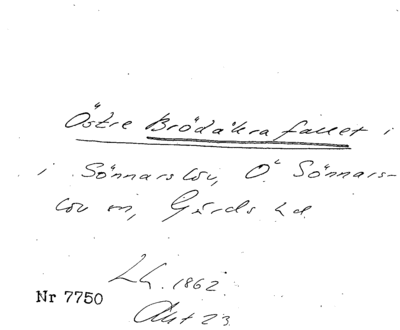 Östre Brödåkra fallet i
i Sönnarslöv, Ö. Sönnars-
löv sn, Gärds hd.
LL. 1862.
Akt 23.
Nr 7750